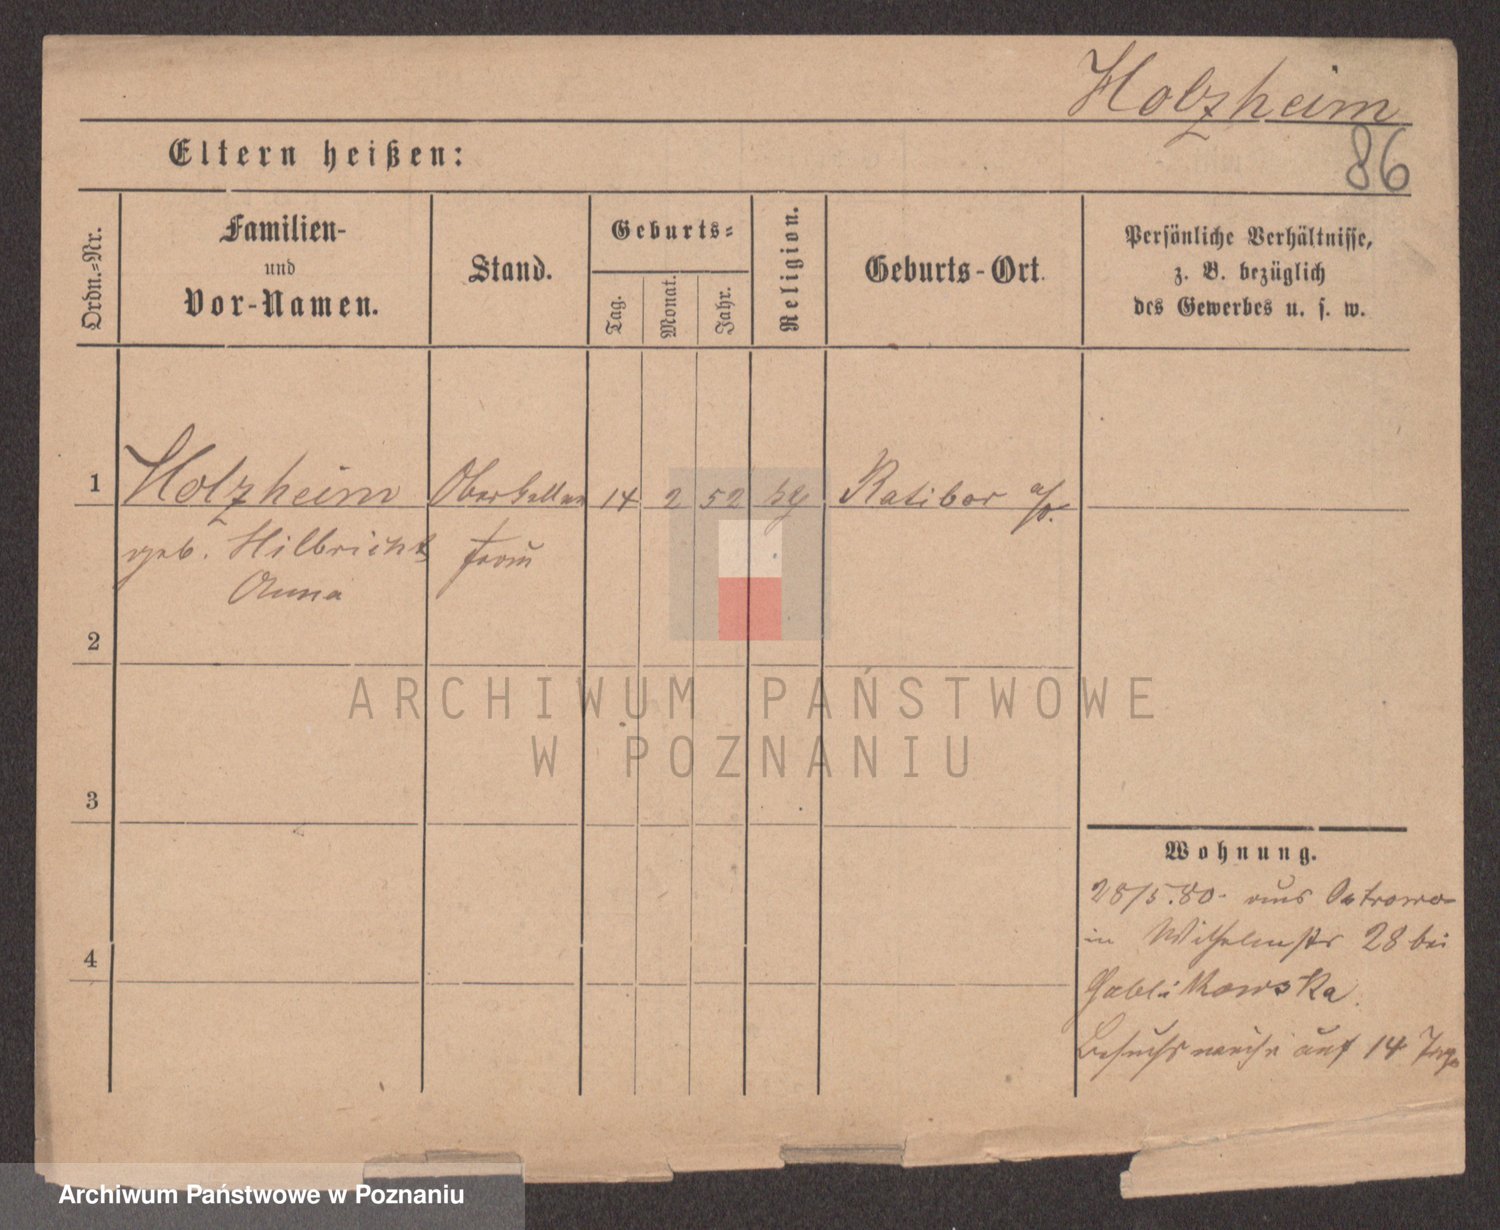 Holzheim
86
Eltern heißen:
Ordn.-Nr.
Familien-
und
Vor-Namen.
Stand.
Geburts-
Tag.
Monat.
Jahr.
Religion.
Geburts-Ort.
Persönliche Verhältnisse,
z. B. bezüglich
des Gewerbes u. s. w.
1 Holzheim Oberkellner 14 2 52 Ratibor a/O.
geb. Hilbricht frau
Anna
2
3
4
Wohnung.
28/5.80. aus Ostrowo
in Wilhelmstr 28 bei
Gablikowska.
Besuchsweise auf 14 Tage
ARCHIWUM PAŃSTWOWE
W POZNANIU
Archiwum Państwowe w Poznaniu